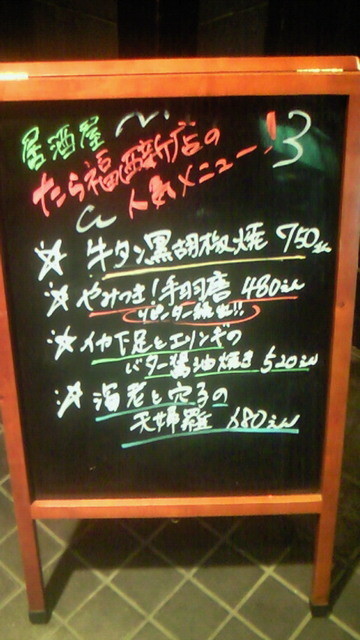 居酒屋
たら福酉新店の
人気メニュー!
☆ 牛タン黒胡椒焼 750えん
☆ やみつき!手羽唐 480えん
リピーター続出!!
☆ イカ下足とエリンギの
バター醤油焼き 520えん
☆ 海老と穴子の
天婦羅 680えん